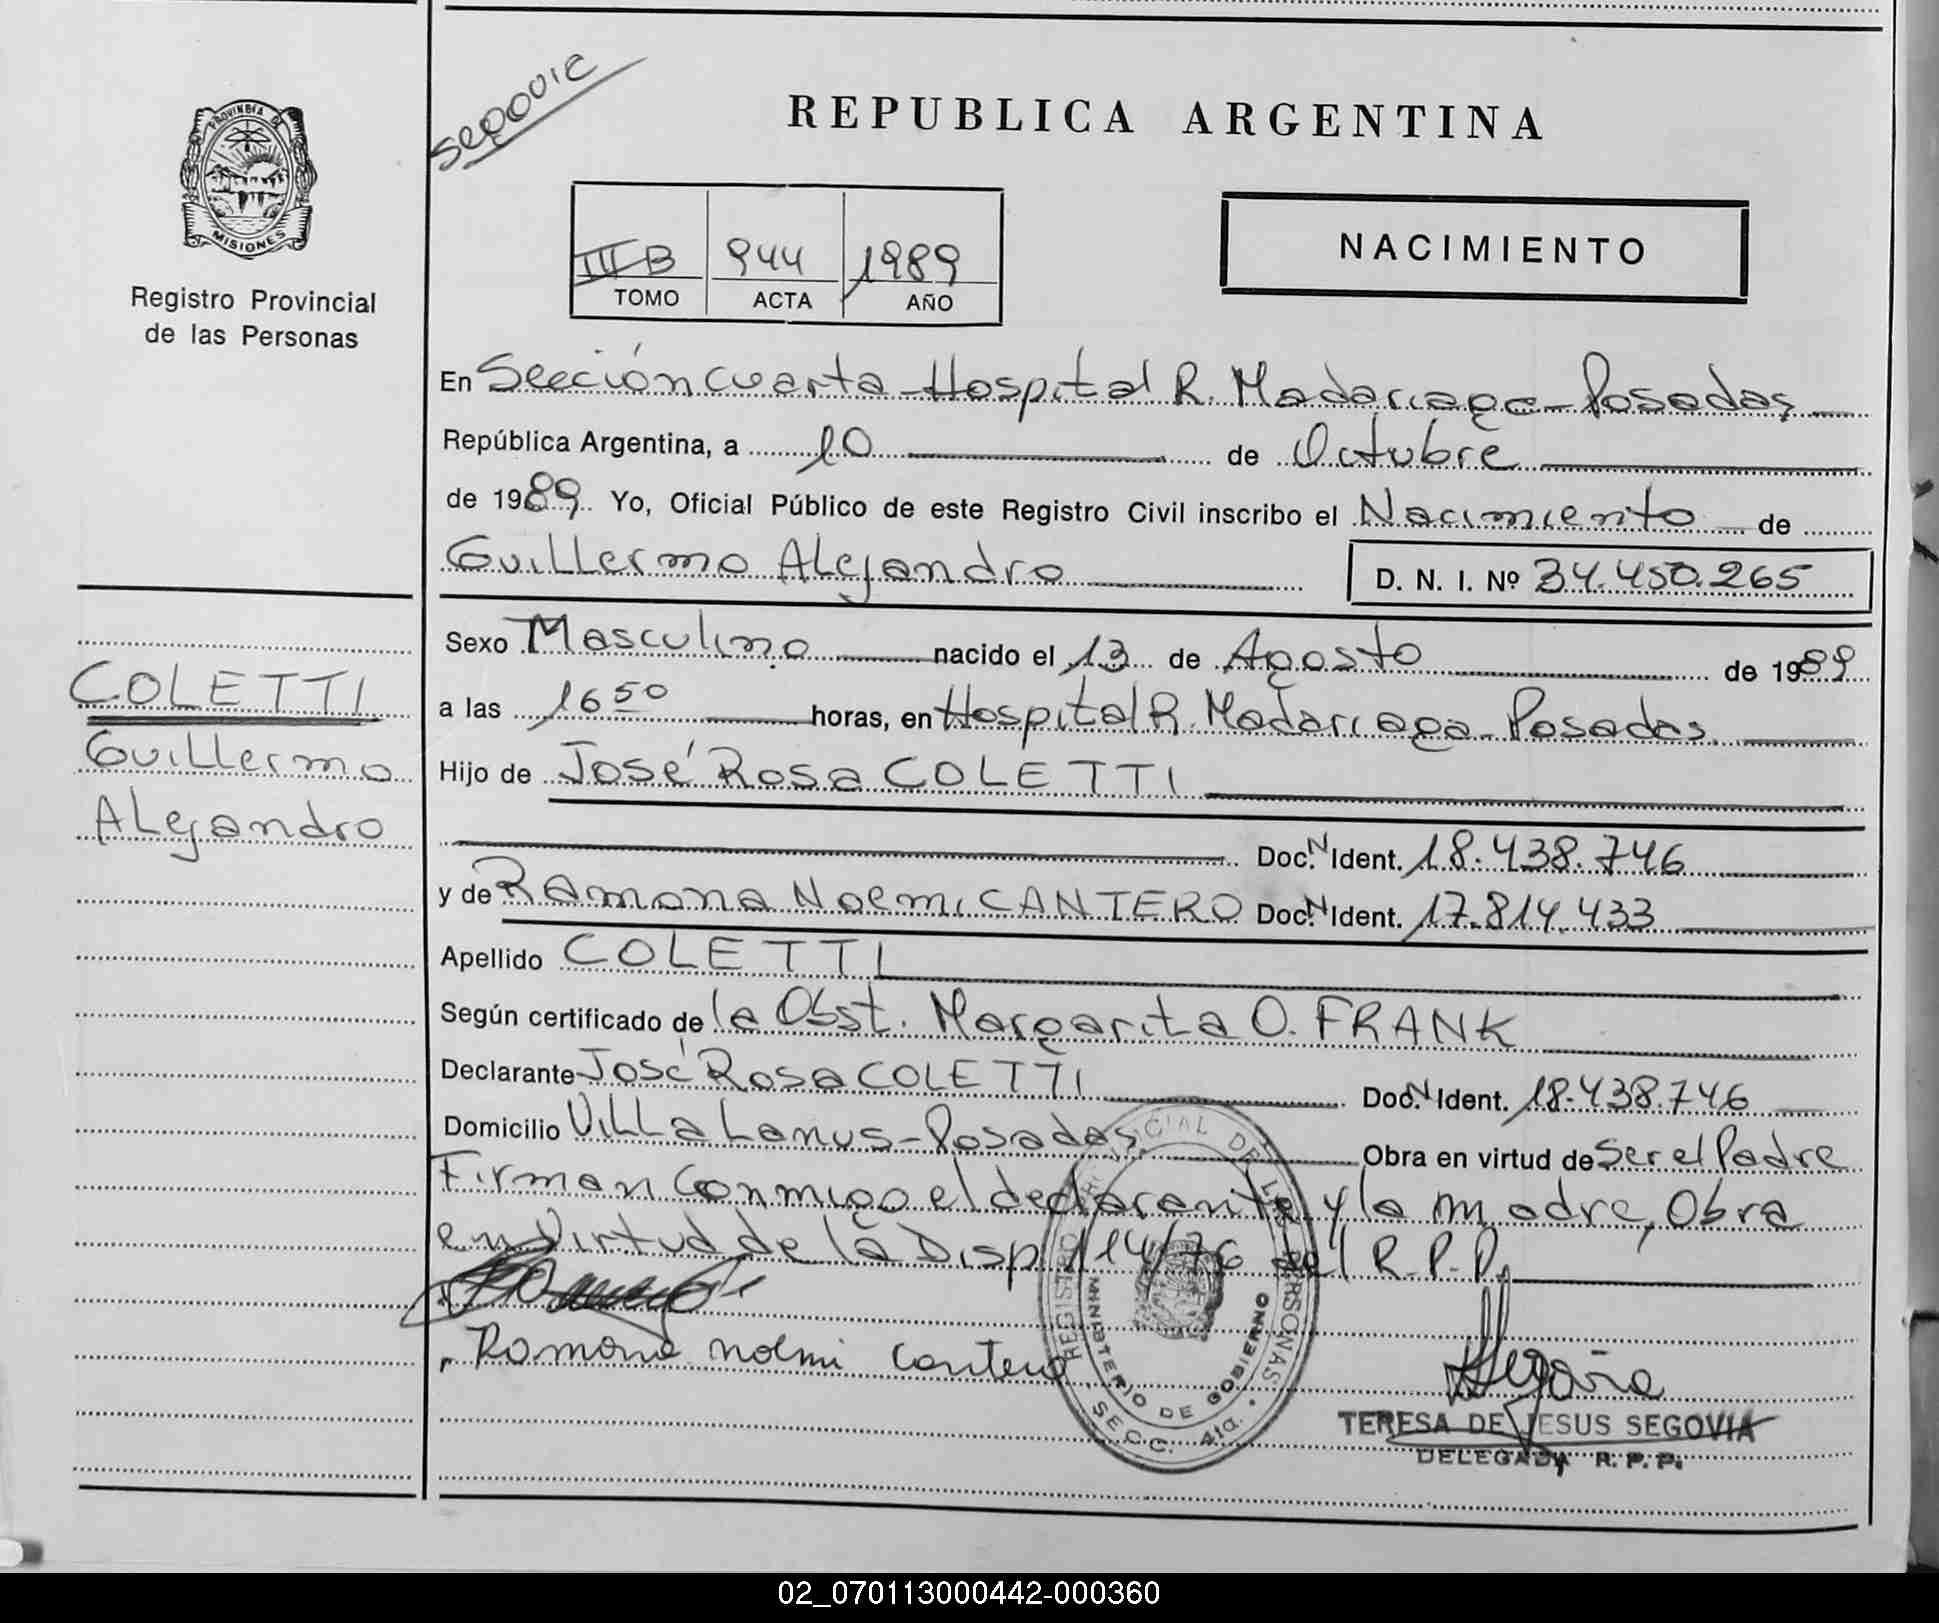 Segovia
REPUBLICA ARGENTINA
PROVINCIA DE
MISIONES
Registro Provincial
de las Personas
III B 944 1989
TOMO ACTA AÑO
NACIMIENTO
En Sección cuarta - Hospital R. Madariaga - Posadas
República Argentina, a 10 de Octubre
de 1989. Yo, Oficial Público de este Registro Civil inscribo el Nacimiento de
Guillermo Alejandro D. N. I. Nº 34.450.265
COLETTI
Guillermo
Alejandro
Sexo Masculino nacido el 13 de Agosto de 1989
a las 16 50 horas, en Hospital R. Madariaga - Posadas
Hijo de José Rosa COLETTI
Doc. N Ident. 18.438.746
y de Ramona Noemi CANTERO Doc. N Ident. 17.814.433
Apellido COLETTI
Según certificado de la Obst. Margarita O. FRANK
Declarante José Rosa COLETTI Doc. N Ident. 18.438.746
Domicilio Villa Lanus - Posadas Obra en virtud de Ser el Padre
Firman conmigo el declarante y la madre, Obra
en Virtud de la Disp 114/76 del R.P.P.
Ramona noemi Cantero
REGISTRO PROVINCIAL DE LAS PERSONAS
MINISTERIO DE GOBIERNO
SECC. 4ta.
Segovia
TERESA DE JESUS SEGOVIA
DELEGADA R. P. P.
02_070113000442-000360